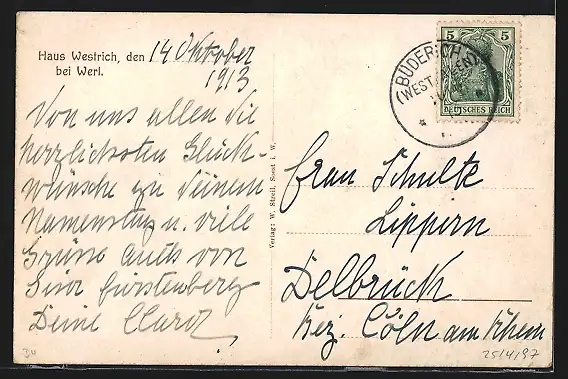 Haus Westrich, den 14 Oktober
bei Werl. 1913
Von uns allen die
herzlichsten Glück-
wünsche zu Deinem
Namenstag u. viele
Grüsse auch von
Fürstenberg
Deine Clara
Verlag: W. Streil, Soest i. W.
BÜDERICH
(WESTFALEN)
5 5
DEUTSCHES REICH
Frau Schulte
Lippern
Delbrück
Bez. Cöln am Rhein
25/4/97